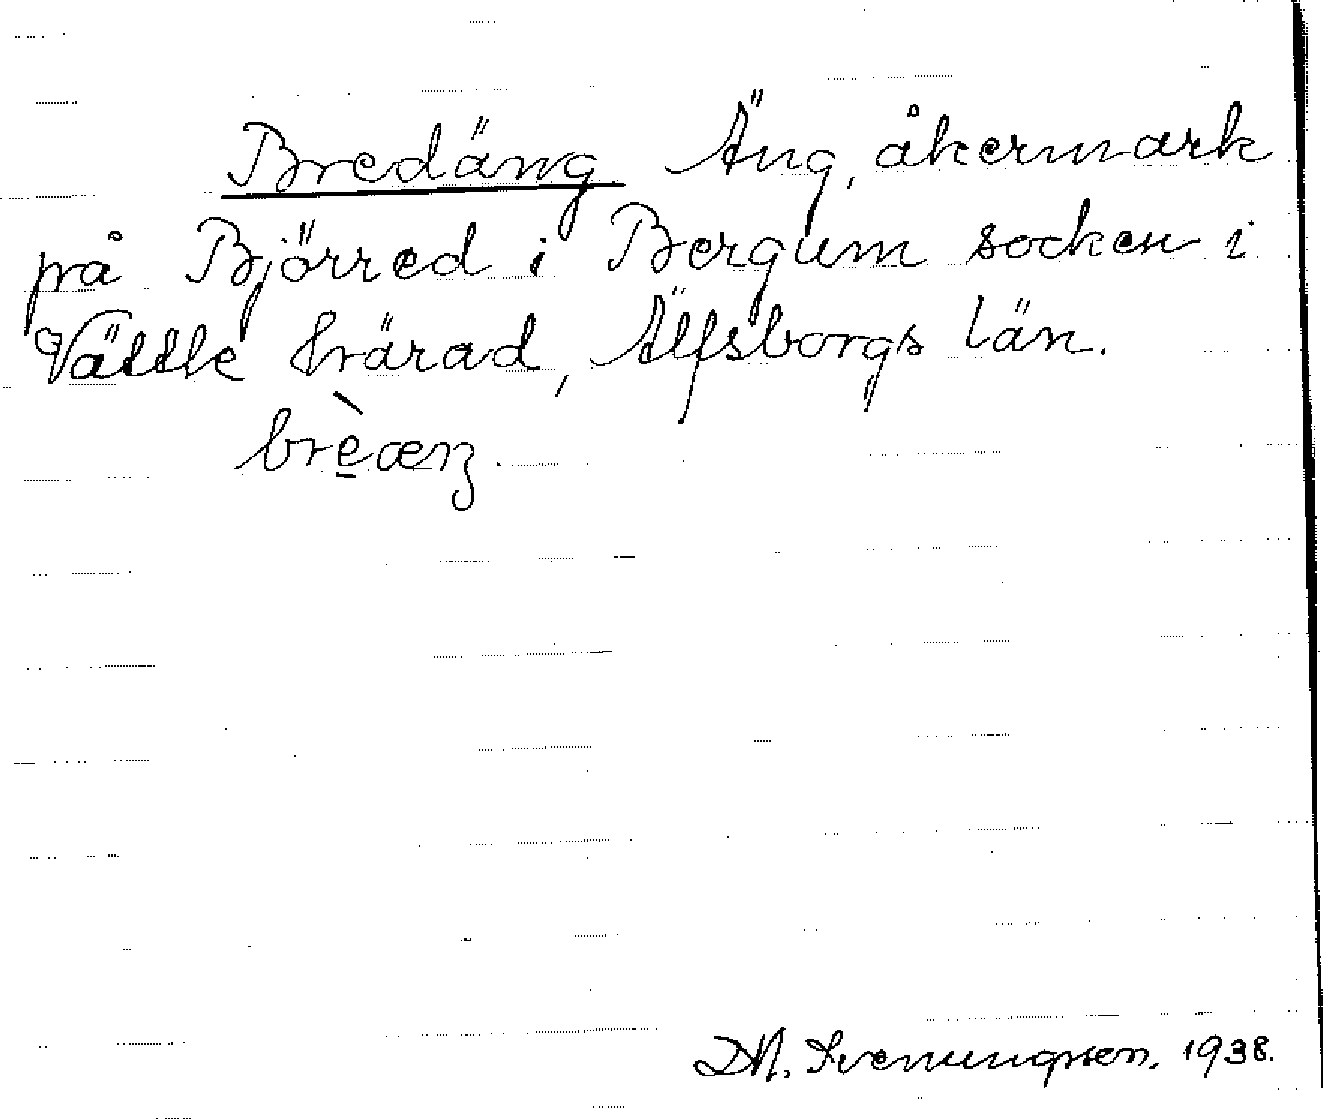 Bredäng Äng, åkermark
på Björred i Bergum socken i
Vättle härad, Älfsborgs län.
brèæŋ.
D.A. Svenungsson. 1938.